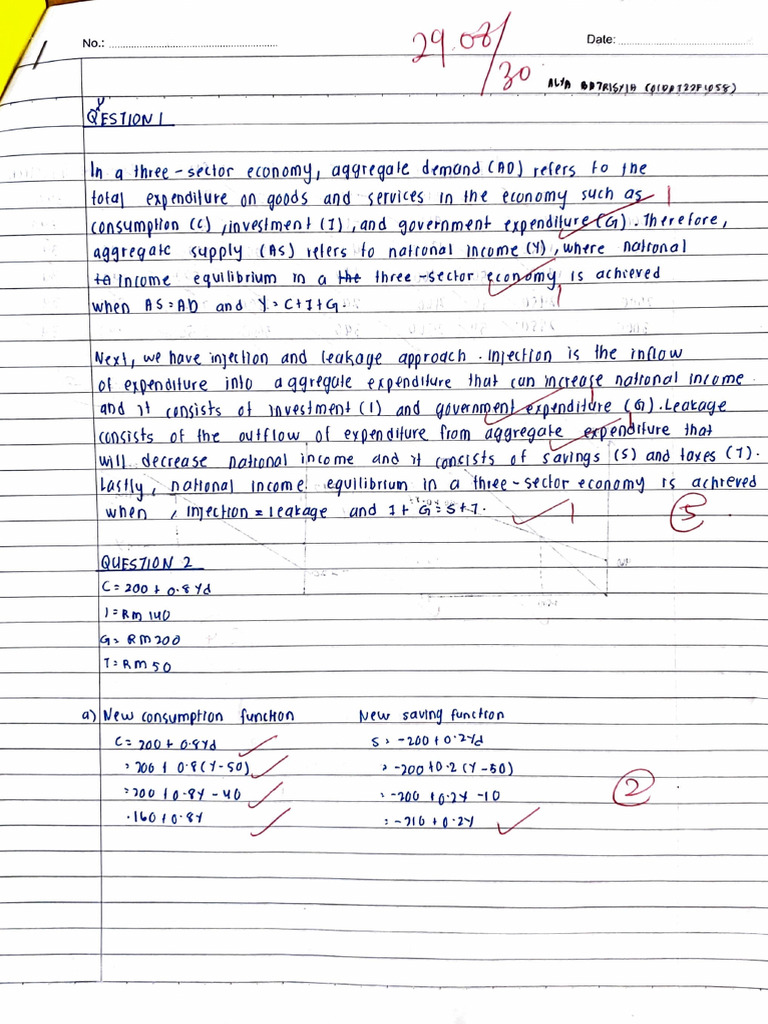 No.: Date:
29.08/30
ALYA BATRISYIA (01DAT22F1058)
QUESTION 1
In a three-sector economy, aggregate demand (AD) refers to the
total expenditure on goods and services in the economy such as 1
consumption (C), investment (I), and government expenditure (G). Therefore,
aggregate supply (AS) refers to national income (Y), where national
income equilibrium in a the three-sector economy, is achieved
when AS=AD and Y=C+I+G. 1
Next, we have injection and leakage approach. Injection is the inflow
of expenditure into aggregate expenditure that can increase national income
and it consists of investment (I) and government expenditure (G). Leakage
consists of the outflow of expenditure from aggregate expenditure that
will decrease national income and it consists of savings (S) and taxes (T).
Lastly, national income equilibrium in a three-sector economy is achieved
when, injection = leakage and I + G = S + T. 1 5
QUESTION 2
C = 200 + 0.8Yd
I = RM 140
G = RM 200
T = RM 50
a) New consumption function New saving function
C = 200 + 0.8Yd S = -200 + 0.2Yd
= 200 + 0.8(Y-50) = -200 + 0.2 (Y-50)
= 200 + 0.8Y - 40 = -200 + 0.2Y - 10 2
= 160 + 0.8Y = -210 + 0.2Y